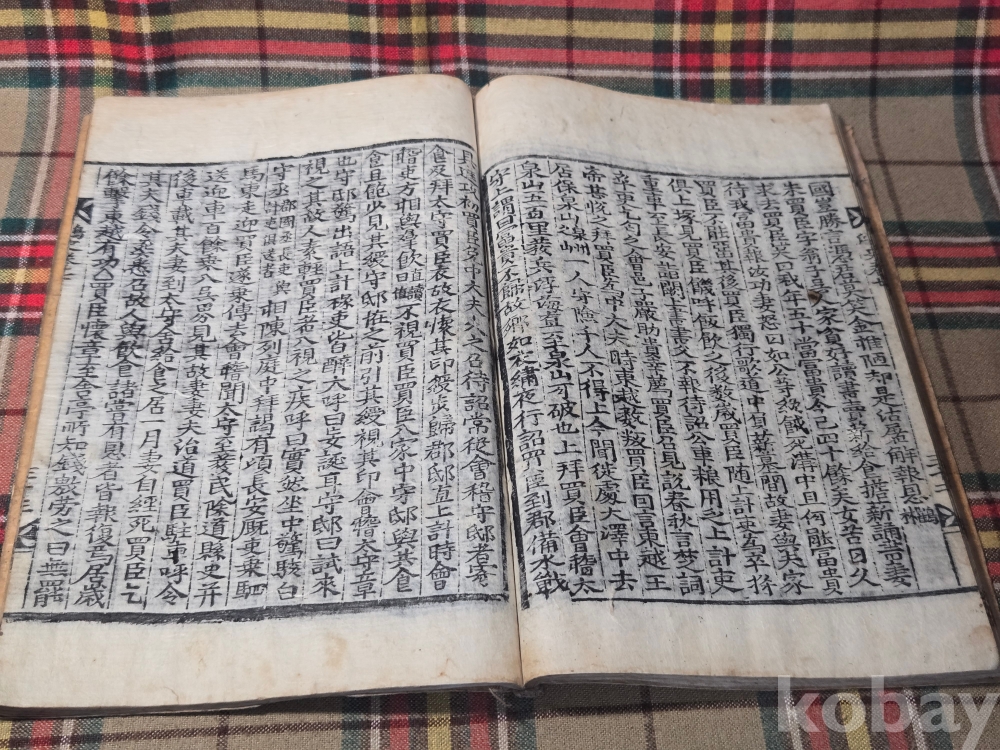 朱買臣字翁子吳人家貧好讀書賣薪給食擔薪誦書妻
求去買臣笑曰我年五十當富貴今已四十餘矣女苦日久
待我富貴報汝功妻恚曰如公等終餓死溝中耳何能富貴
買臣不能留其後買臣獨行歌道中負薪墓間故妻與夫家
俱上塚見買臣飢呼飯飲之後數歲買臣随上計吏爲卒將
重車至長安詣闕上書書久不報待詔公車粮用乏上計吏
卒更乞匄之會邑子嚴助貴幸薦買臣召見說春秋言楚詞
帝甚悅之拜買臣爲中大夫時東越數叛買臣曰言東越王
居保泉山泉州之山一人守險千人不得上今聞徙處大澤中去
泉山五百里發兵浮海直至泉山可破也上拜買臣會稽太
守上謂曰富貴不歸故鄉如衣繡夜行詔買臣到郡備水戰
買臣爲中大夫公之召待詔常從會稽守邸者寄
食及拜太守買臣衣故衣懷其印綬步歸郡邸直上計時會
稽吏方相與羣飲不視買臣買臣入室中守邸與共食
食且飽少見其綬守邸怪之前引其綬視其印會稽太守章
也守邸驚出語上計掾吏皆醉大呼曰妄誕耳守邸曰試來
視之其故人素輕買臣者入視之疾呼曰實然坐中驚駭白
守丞相陳列庭中拜謁有頃長安厩吏乘駟
馬車來迎買臣遂乘傳去會稽聞太守至發民除道縣史并
送迎車百餘乘入吳界見其故妻妻夫治道買臣駐車呼令
後車載其夫妻到太守舍給食之居一月妻自經死買臣乞
其夫錢令葬悉召故人與飲食諸嘗有恩者皆報復焉居歲
餘擊東越有功買臣懷章至舍亭所知錢勃勞之曰無罷
kobay